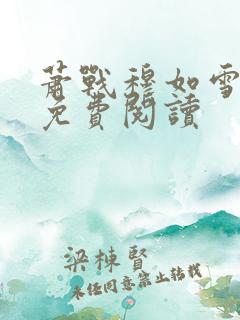 蕭戰穆如雪
免費閱讀
梁棟賢
未經同意禁止轉載